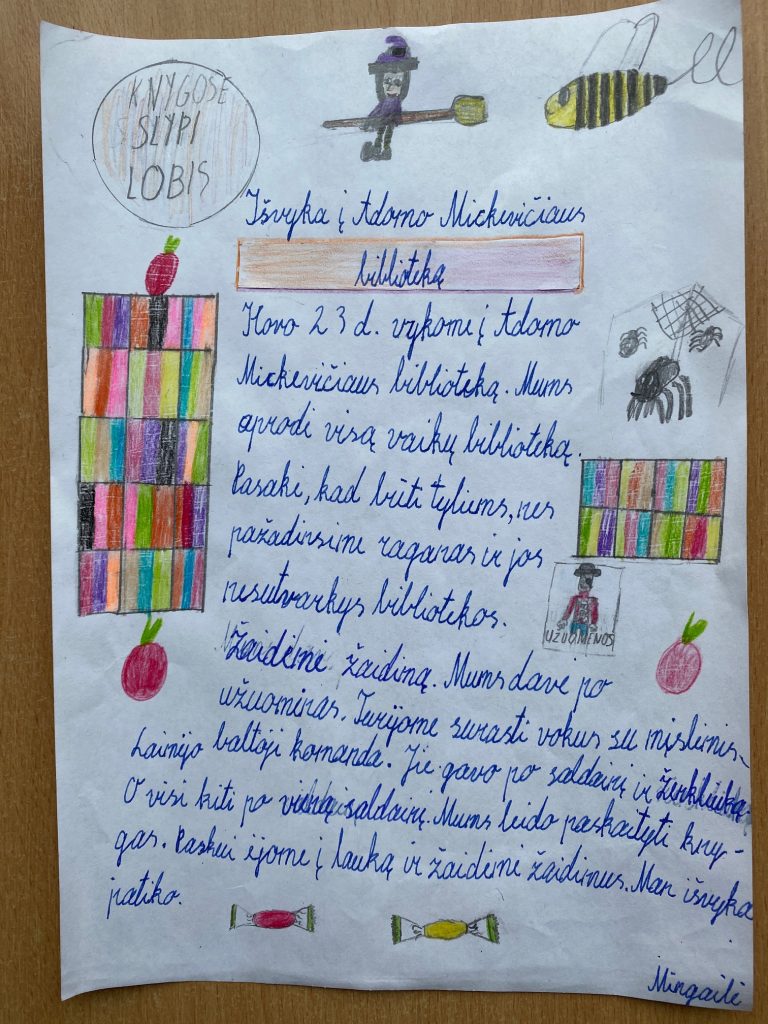 KNYGOSE
SLYPI
LOBIS
Išvyka į Adomo Mickevičiaus
biblioteką
Kovo 23 d. vykome į Adomo
Mickevičiaus biblioteką. Mums
aprodi visą vaikų biblioteką.
Pasaki, kad būti tyliems, nes
pažadinsime raganas ir jos
nesutvarkys bibliotekos.
Žaidėme žaidimą. Mums davė po
užuominas. Turėjome surasti vokus su mįslėmis.
Laimėjo baltoji komanda. Jie gavo po saldainį ir ženkliuką
O visi kiti po vieną saldainį. Mums leido paskaityti kny-
gas. Paskui ėjome į lauką ir žaidėme žaidimus. Man išvyka
patiko.
UŽUOMENOS
Mingailė